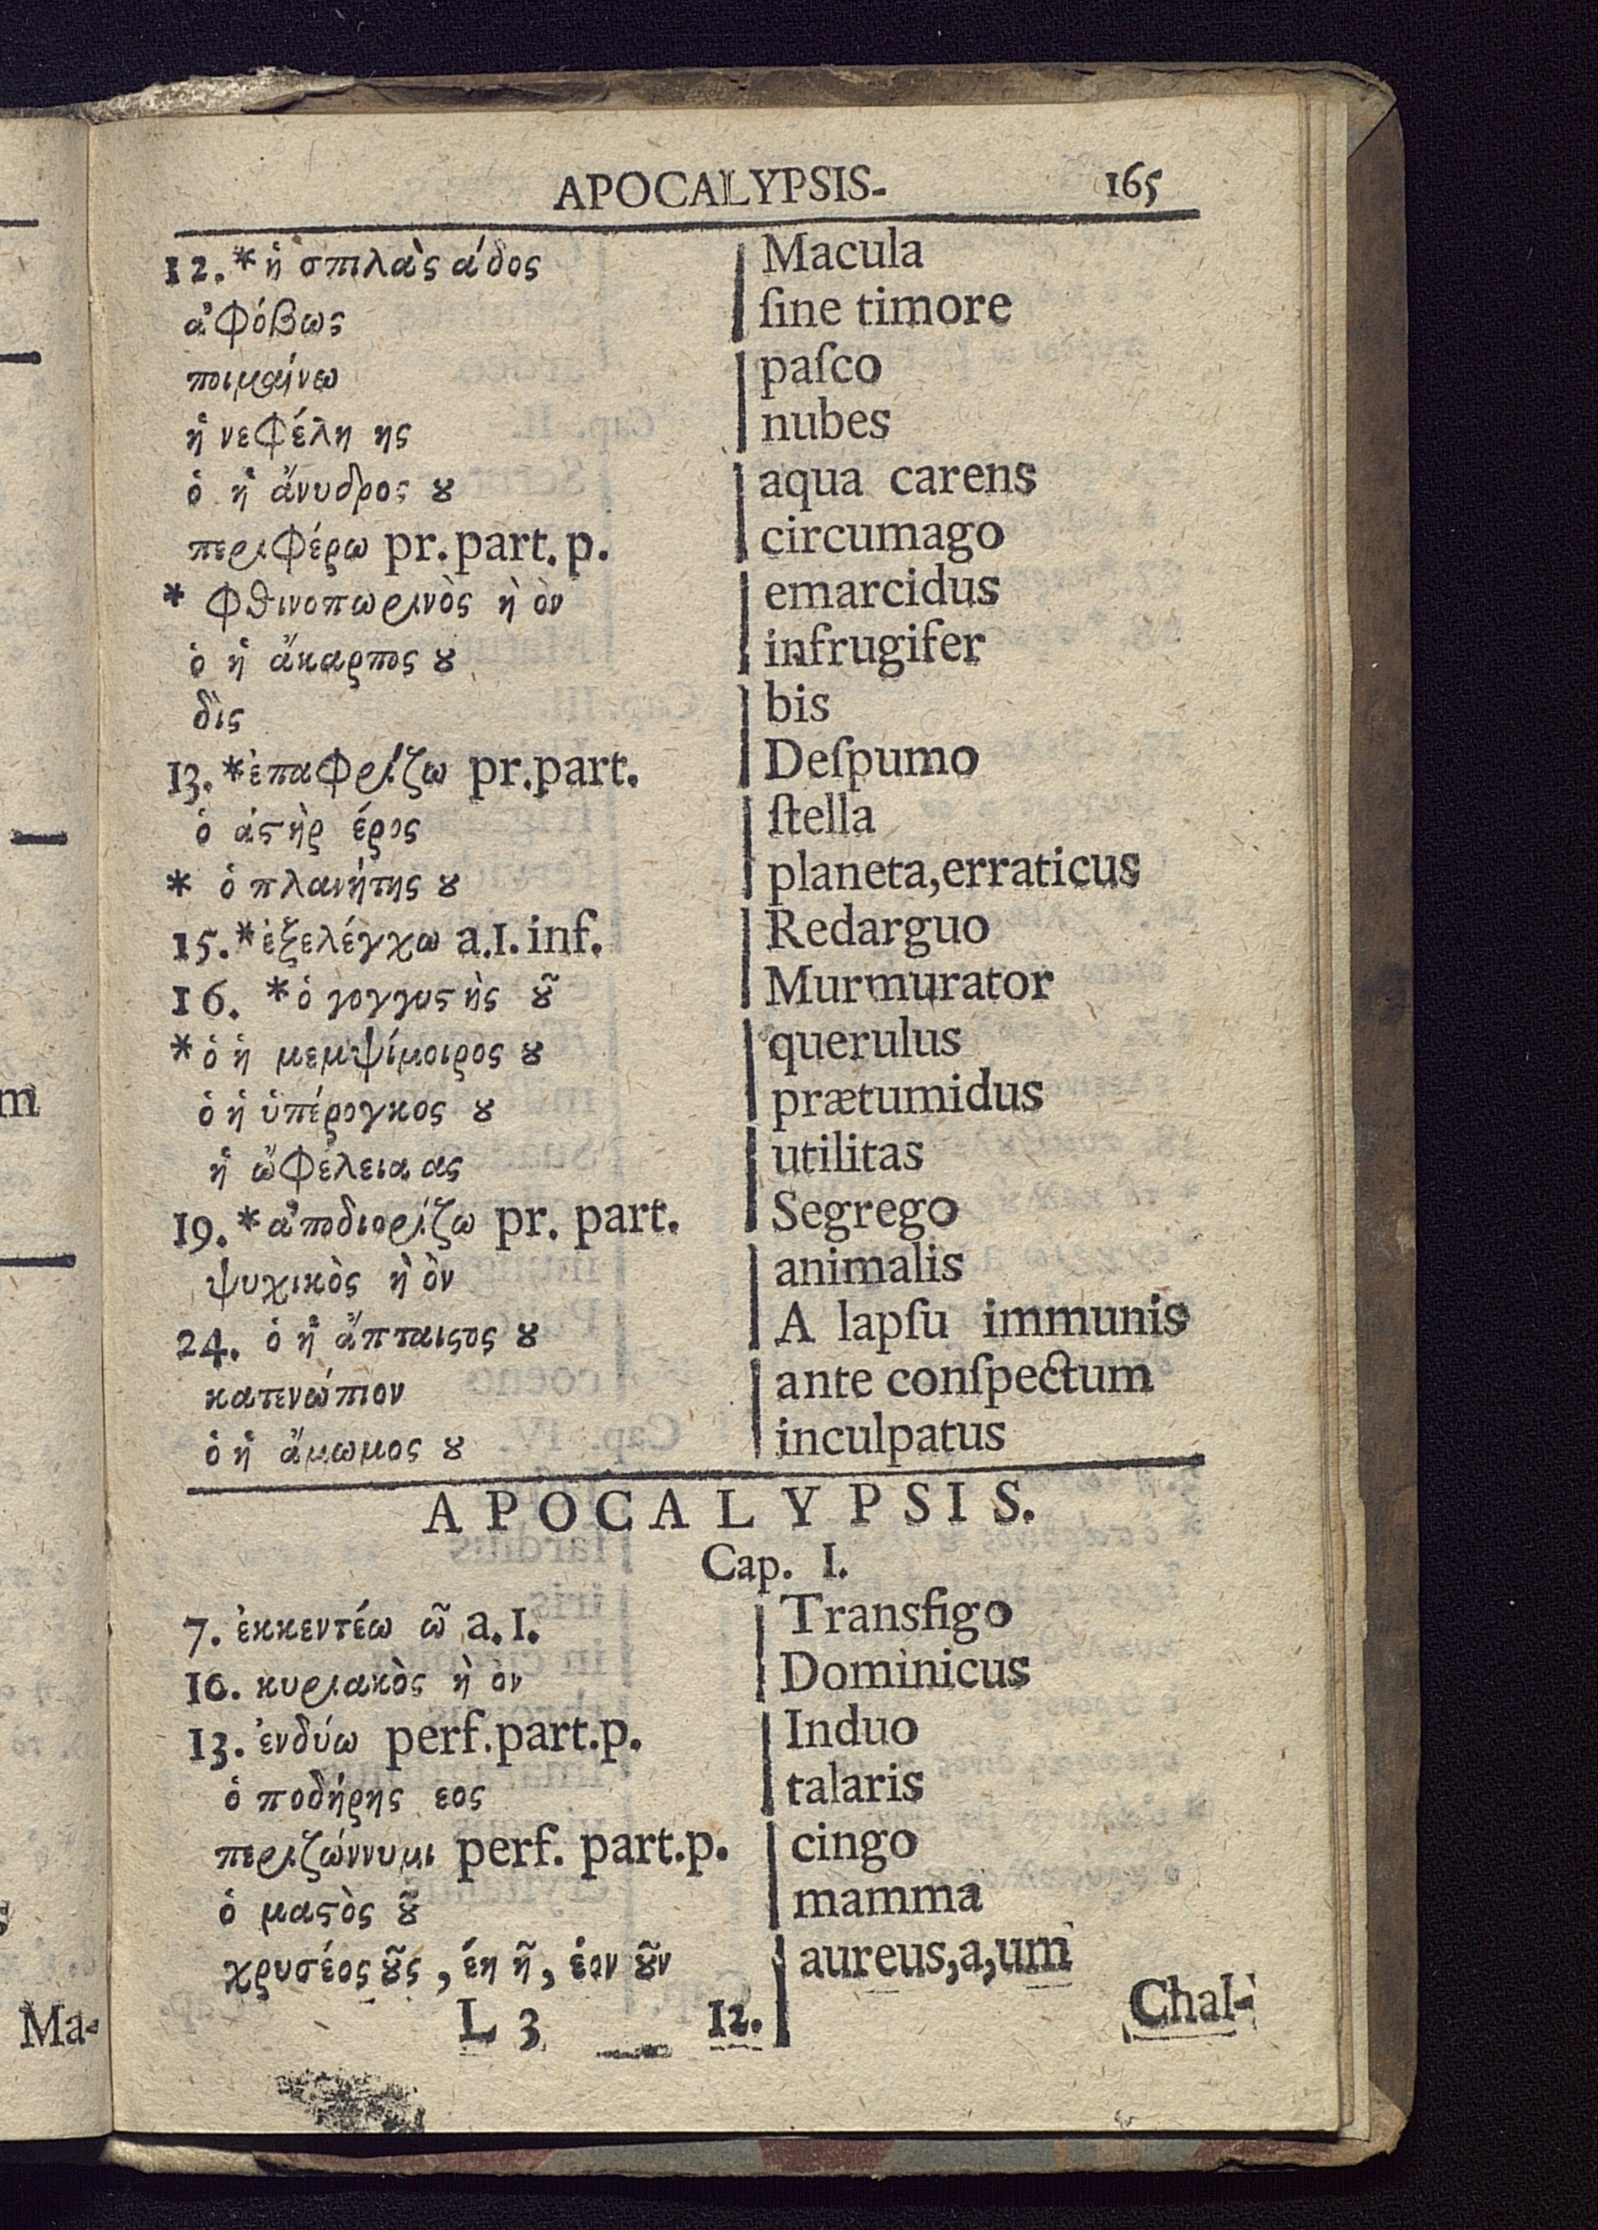 APOCALYPSIS. 165
12. * ἡ σπιλὰς άδος | Macula
ἀφόβως | ſine timore
ποιμαίνω | paſco
ἡ νεφέλη ης | nubes
ὁ ἡ ἄνυδρος ȣ | aqua carens
περιφέρω pr. part. p. | circumago
* φθινοπωρινὸς ὴ ὸν | emarcidus
ὁ ἡ ἄκαρπος ȣ | infrugifer
δὶς | bis
13. * ἐπαφρίζω pr. part. | Deſpumo
ὁ ἀϛὴρ έρος | ſtella
* ὁ πλανήτης ȣ | planeta, erraticus
15. * ἐξελέγχω a. 1. inf. | Redarguo
16. * ὁ γογγυϛὴς ȣ͂ | Murmurator
* ὁ ἡ μεμψίμοιρος ȣ | querulus
ὁ ἡ ὑπέρογκος ȣ | prætumidus
ἡ ὠφέλεια ας | utilitas
19. * ἀποδιορίζω pr. part. | Segrego
ψυχικὸς ὴ ὸν | animalis
24. ὁ ἡ ἄπταιϛος ȣ | A lapſu immunis
κατενώπιον | ante conſpectum
ὁ ἡ ἄμωμος ȣ | inculpatus
APOCALYPSIS.
Cap. I.
7. ἐκκεντέω ῶ a. 1. | Transfigo
10. κυριακὸς ὴ ὸν | Dominicus
13. ἐνδύω perf. part. p. | Induo
ὁ ποδήρης εος | talaris
περιζώννυμι perf. part. p. | cingo
ὁ μαϛὸς ȣ͂ | mamma
χρυσέος ȣ͂ς, έη ῆ, έον ȣ͂ν | aureus, a, um
L 3 12. Chal-
Ma-